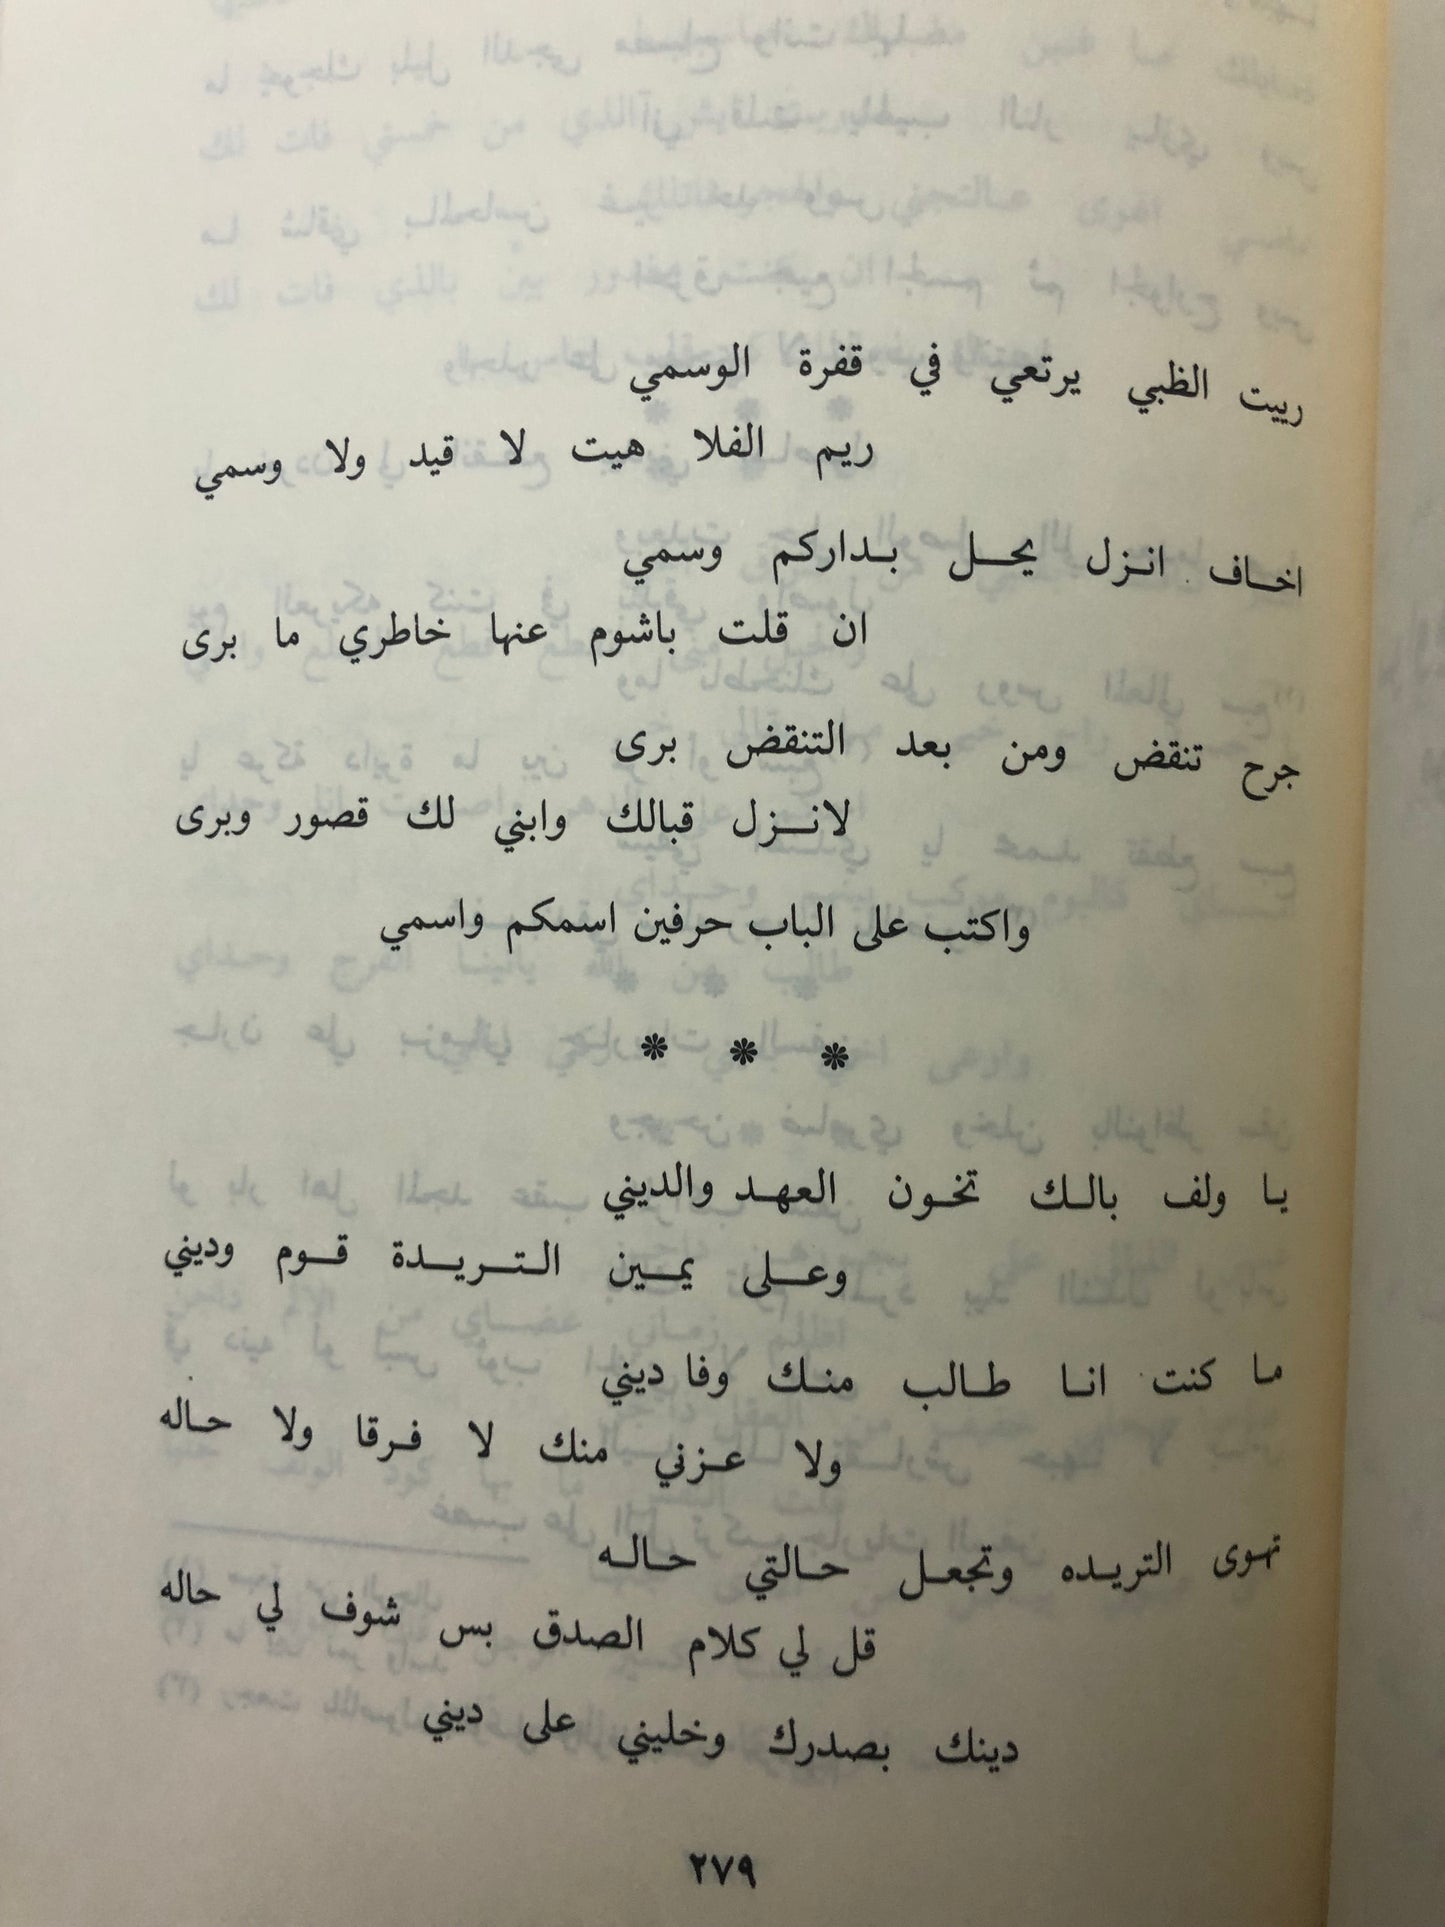 ريت الظبي يرتعي في قفرة الوسمي
ريم الفلا هيت لا قيد ولا وسمي
اخاف انزل يحل بداركم وسمي
ان قلت باشوم عنها خاطري ما برى
جرح تنقض ومن بعد التنقض برى
لانزل قبالك وابني لك قصور وبرى
واكتب على الباب حرفين اسمكم واسمي
* * *
يا ولف بالك تخون العهد والديني
وعلى يمين التريدة قوم وديني
ما كنت انا طالب منك وفا ديني
ولا عزني منك لا فرقا ولا حاله
تهوى التريده وتجعل حالتي حاله
قل لي كلام الصدق بس شوف لي حاله
دينك بصدرك وخليني على ديني
٢٧٩